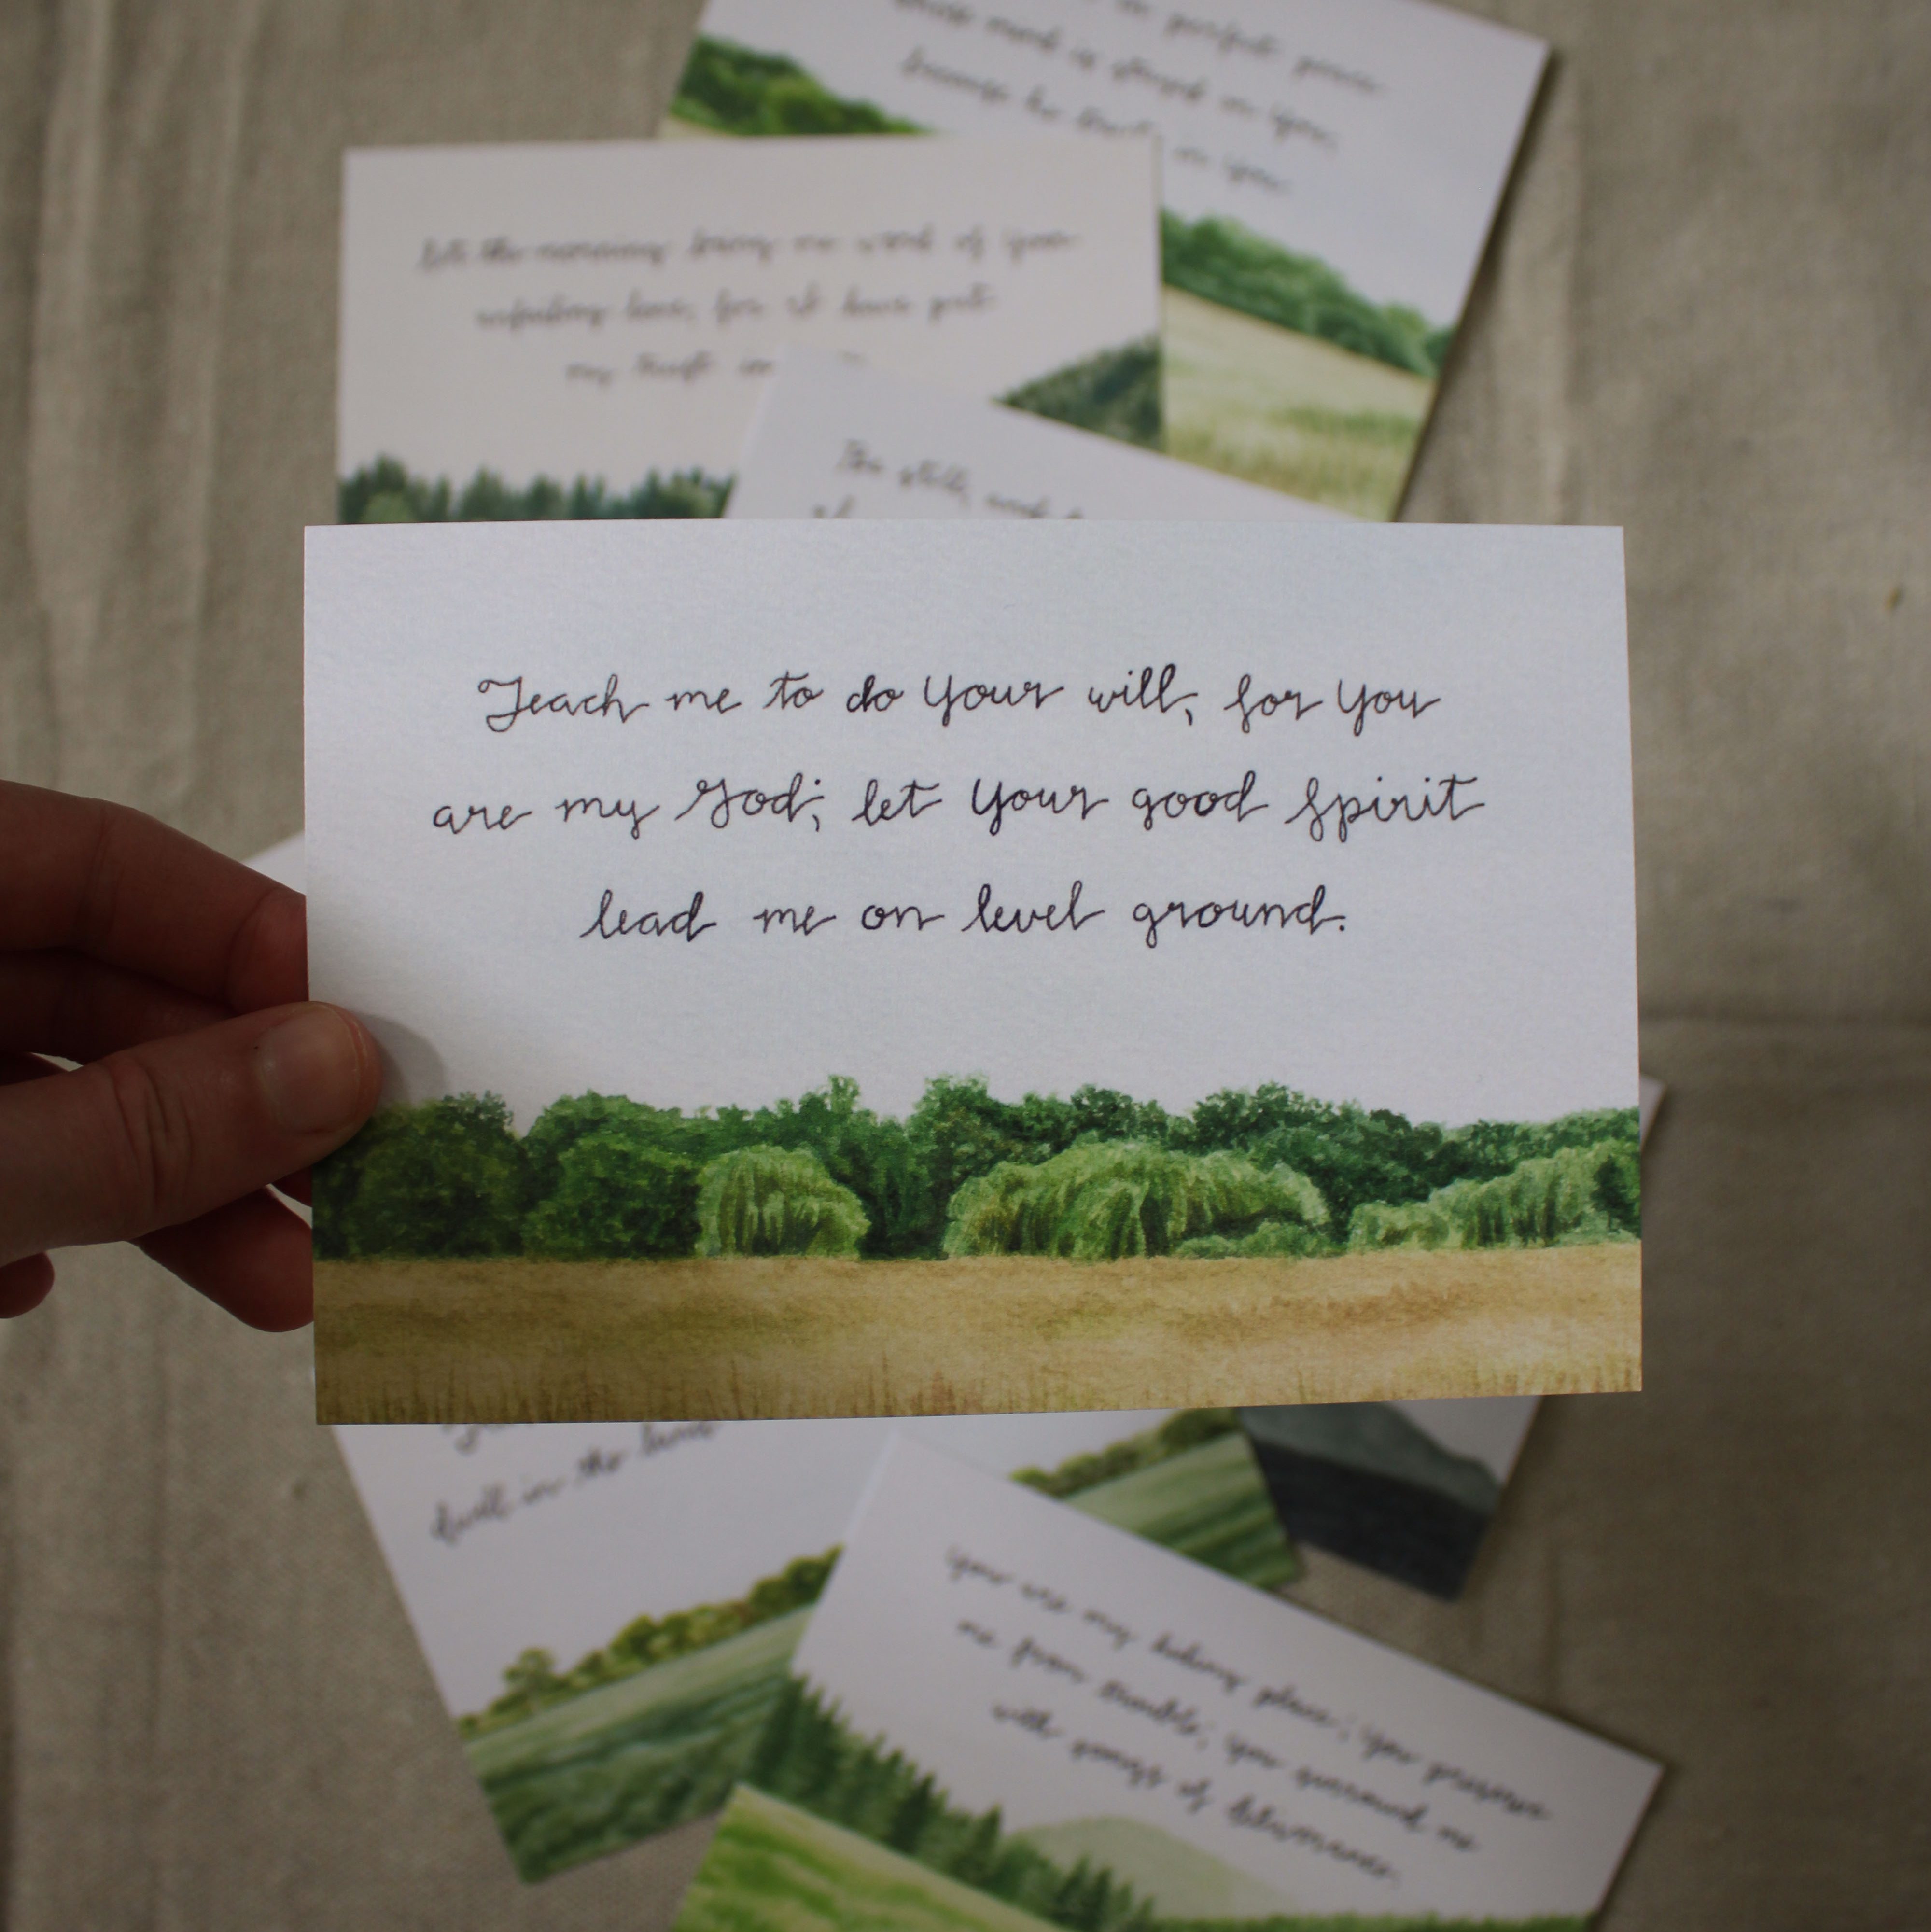 in perfect peace
whose mind is stayed on you,
because he trusts in you.
Let the morning bring me word of your
unfailing love, for I have put
my trust in
Be still, and
Teach me to do Your will, for You
are my God; let Your good Spirit
lead me on level ground.
dwell in the land
You are my hiding place; You preserve
me from trouble; You surround me
with songs of deliverance.